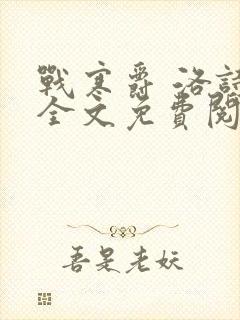 戰寒爵 洛詩
全文免費閱
吾是老妖